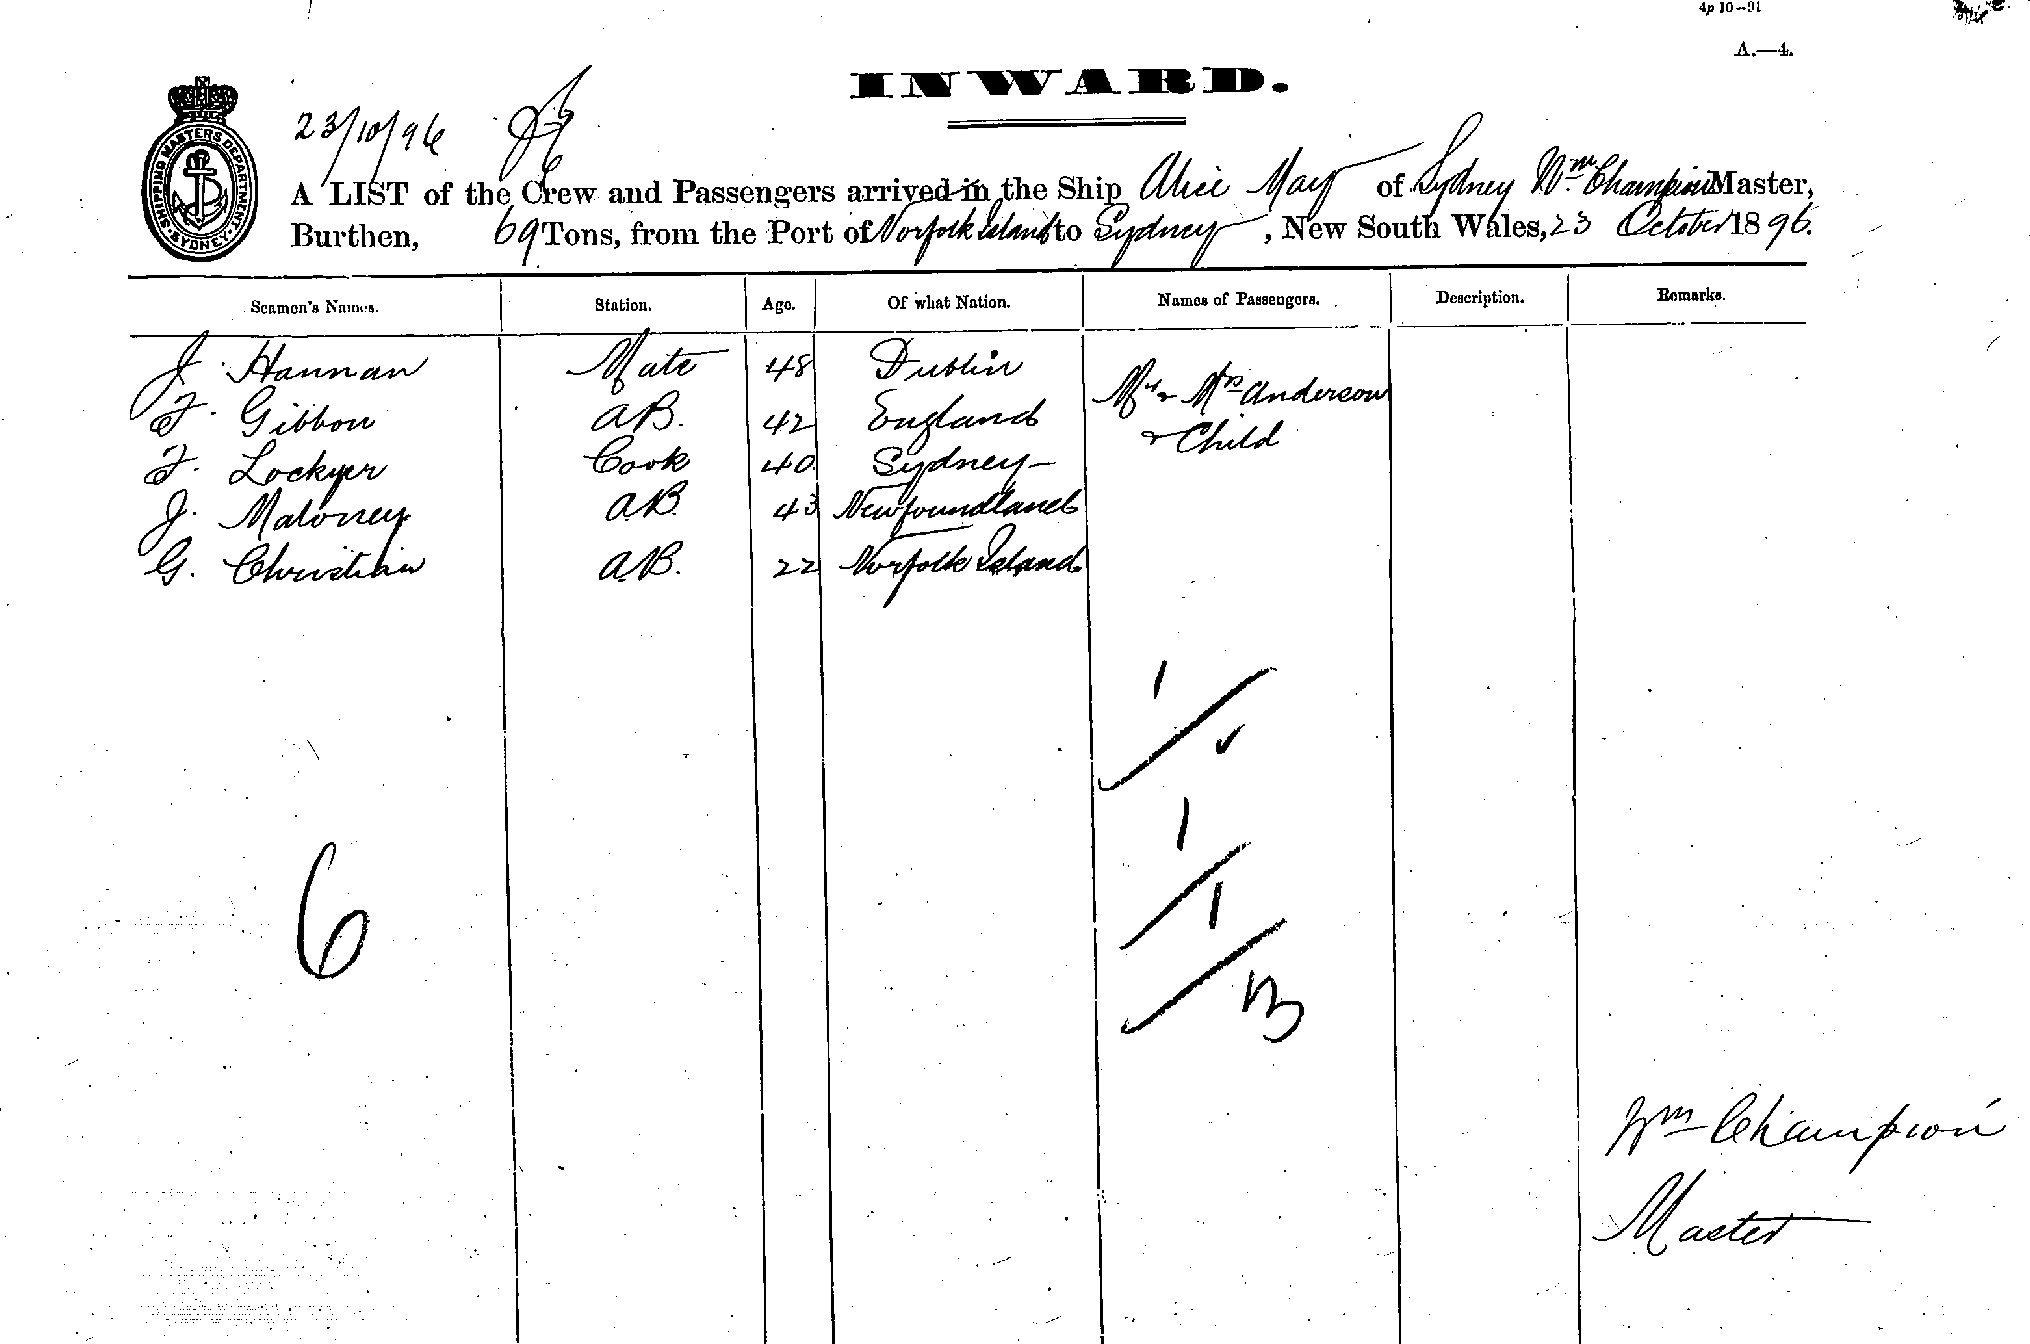 4p 10-91
A.—4.
INWARD.
SHIPPING MASTERS DEPARTMENT SYDNEY
23/10/96
A LIST of the Crew and Passengers arrived in the Ship Alice May of Sydney Wm Champion Master,
Burthen, 69 Tons, from the Port of Norfolk Island to Sydney, New South Wales, 23 October 1896.
Seamen's Names. Station. Age. Of what Nation. Names of Passengers. Description. Remarks.
J. Hannan Mate 48 Dublin Mr & Mrs Anderson
F. Gibbon AB. 42 England & Child
F. Lockyer Cook 40 Sydney
J. Maloney AB 43 Newfoundland
G. Christian AB. 22 Norfolk Island
1
/
✓
1
6
/
1
/
3
Wm Champion
Master